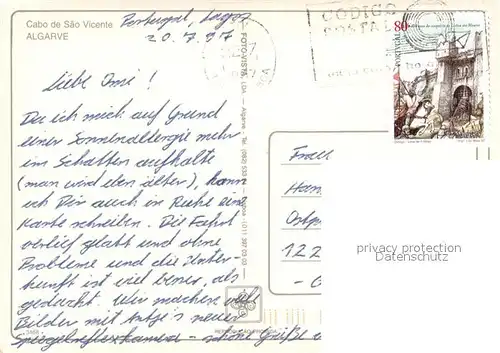 Cabo de São Vicente
ALGARVE
Portugal, Lagos
20.7.97
Liebe Imo!
Da ich mich auf Grund
einer Sonnenallergie mehr
im Schatten aufhalte
(man wird den älter), kann
ich Dir auch in Ruhe eine
Karte schreiben. Die Fahrt
verlief glatt und ohne
Probleme und die Unter-
kunft ist viel besser, als
gedacht. Wir machen viel
Bilder mit Antje's neuer
Spiegelreflexkamera - schöne Grüße
FOTO-VISTA, LDA - Algarve - Tel.
CÓDIGO
POSTAL
80
PORTUGAL
Frau
Han
Ostp
122
privacy protection
Datenschutz